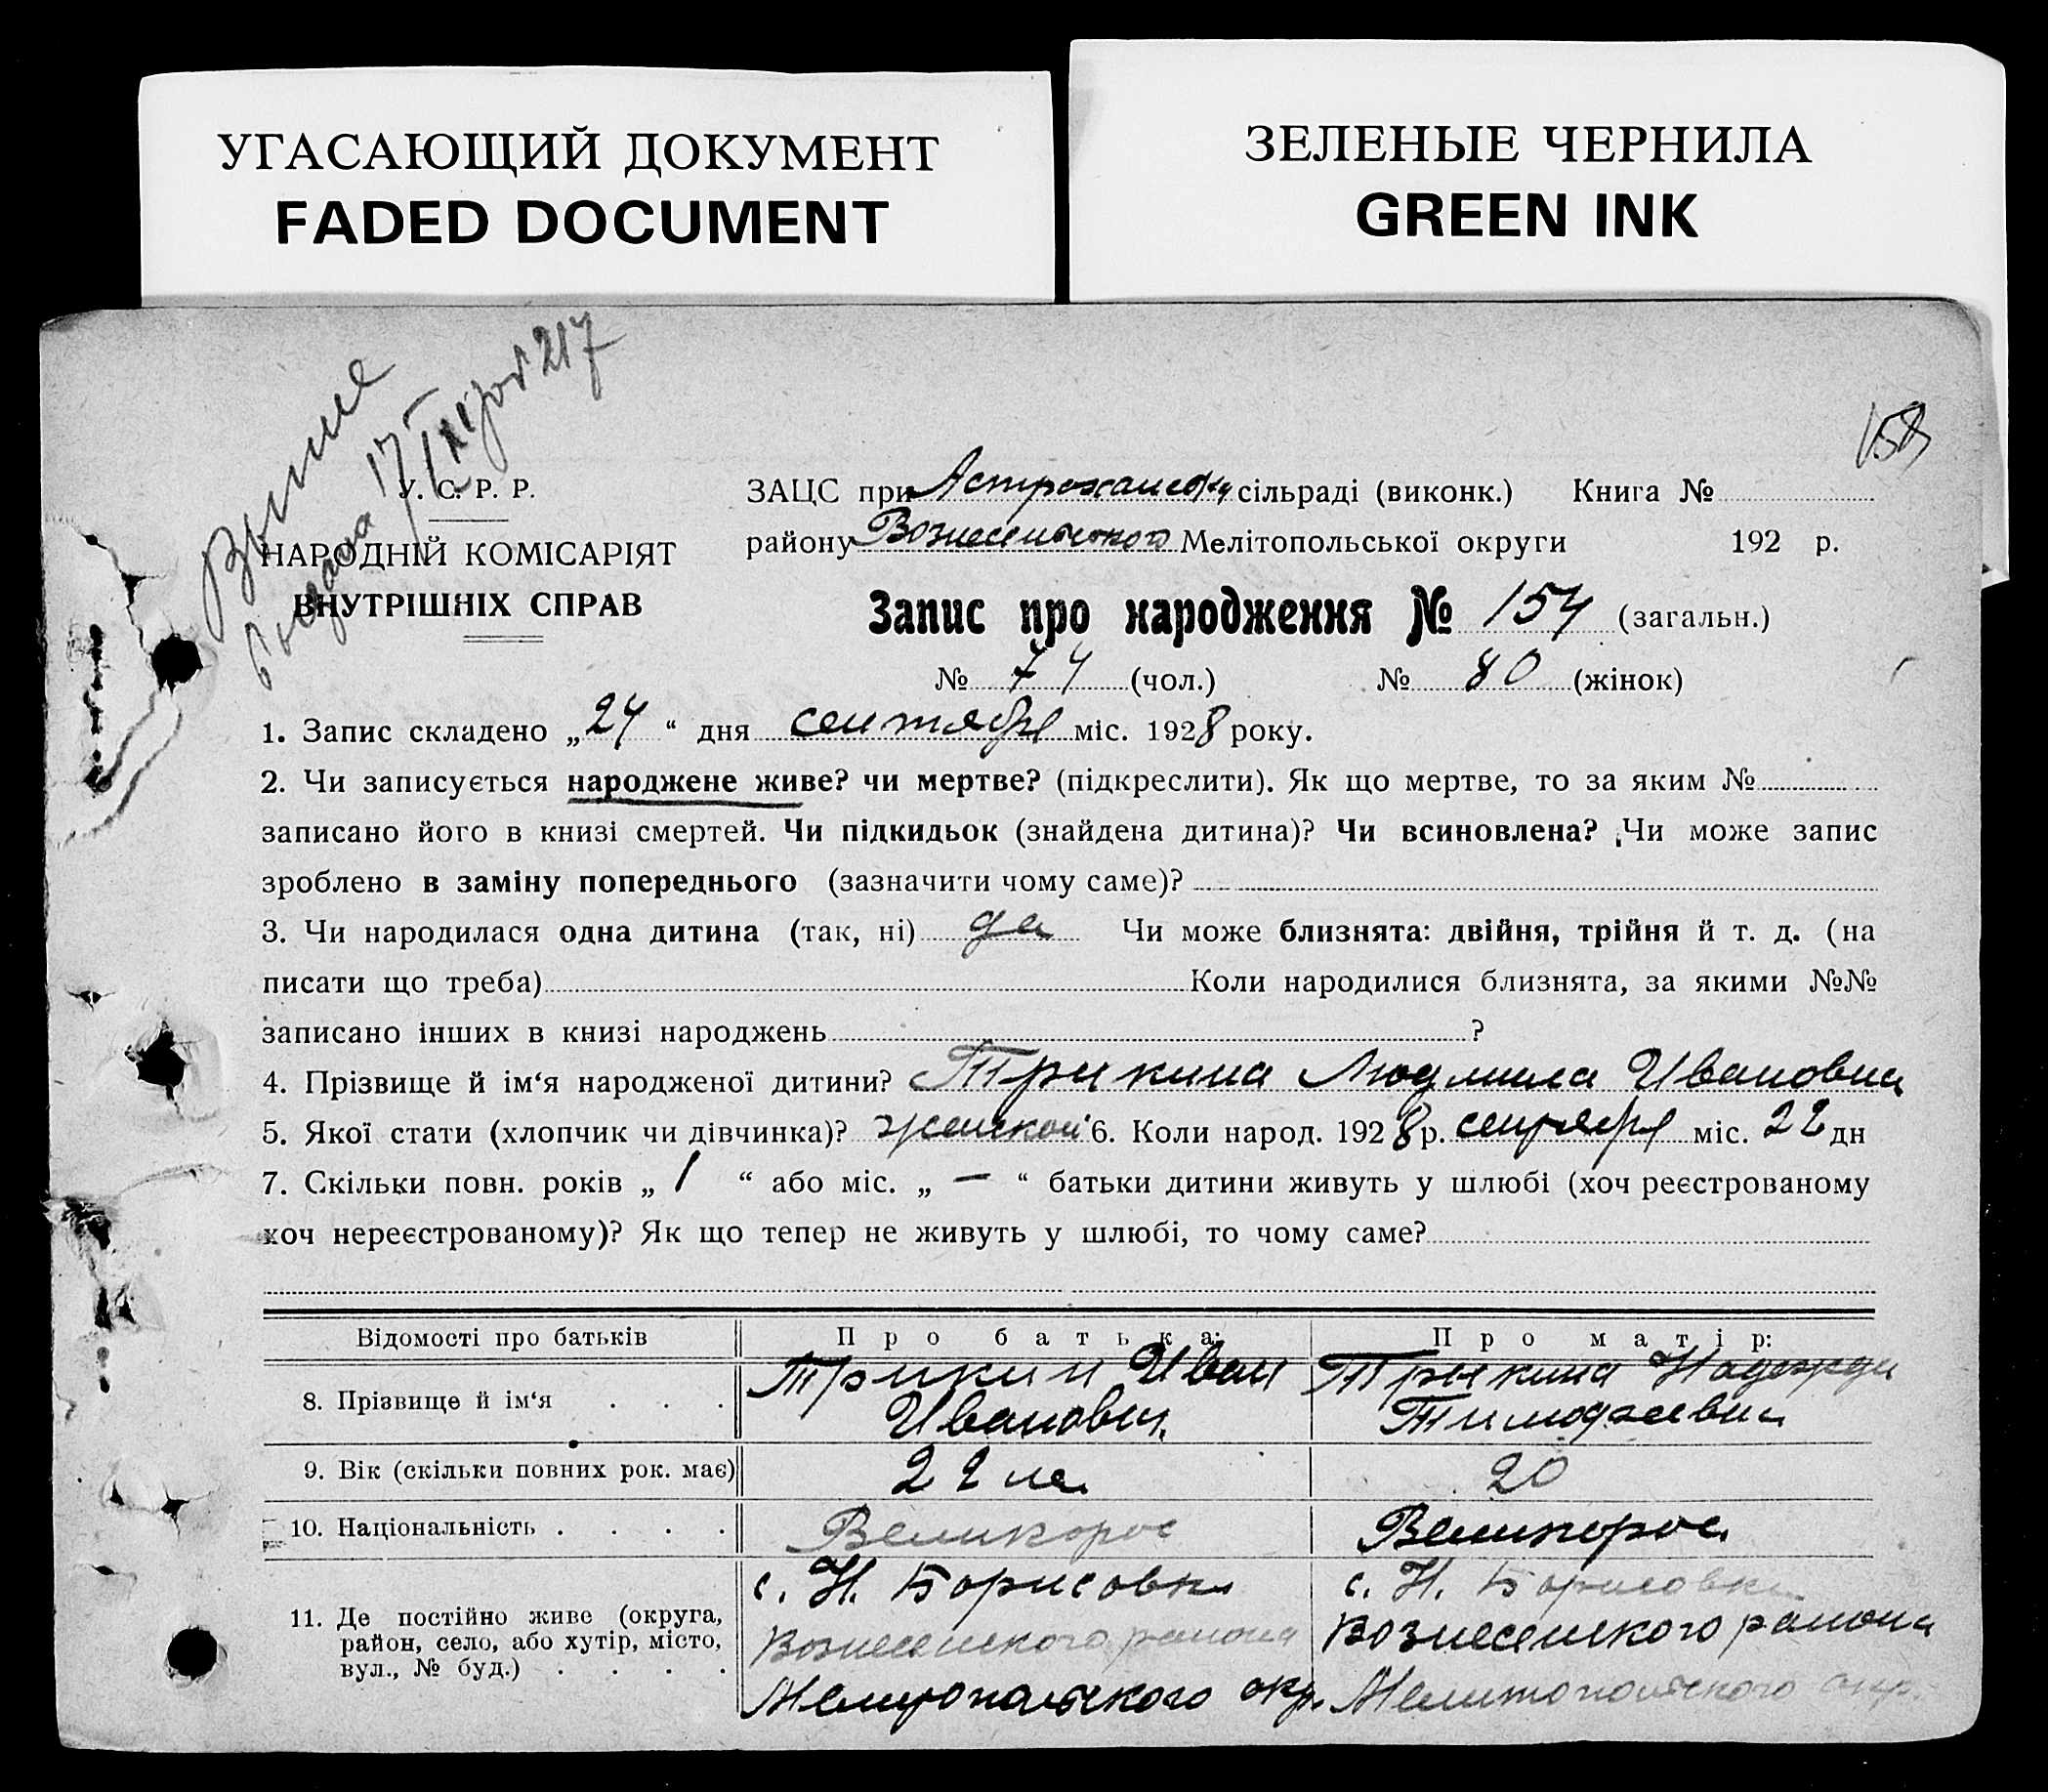 УГАСАЮЩИЙ ДОКУМЕНТ
FADED DOCUMENT
ЗЕЛЕНЫЕ ЧЕРНИЛА
GREEN INK
217
У. С. Р. Р.
НАРОДНІЙ КОМІСАРІЯТ
ВНУТРІШНІХ СПРАВ
ЗАЦС при Астраханском сільраді (виконк.) Книга №
району Вознесенского Мелітопольської округи 192 р.
Запис про народження № 154 (загальн.)
№ 74 (чол.) № 80 (жінок)
1. Запис складено „24“ дня сентября міс. 1928 року.
2. Чи записується народжене живе? чи мертве? (підкреслити). Як що мертве, то за яким №
записано його в книзі смертей. Чи підкидьок (знайдена дитина)? Чи всиновлена? Чи може запис
зроблено в заміну попереднього (зазначити чому саме)?
3. Чи народилася одна дитина (так, ні) да Чи може близнята: двійня, трійня й т. д. (на
писати що треба) Коли народилися близнята, за якими №№
записано інших в книзі народжень ?
4. Прізвище й ім‘я народженої дитини? Трыкина Людмила Ивановна
5. Якої стати (хлопчик чи дівчинка)? женской 6. Коли народ. 1928 р. сентября міс. 22 дн
7. Скільки повн. років „ 1 “ або міс. „ — “ батьки дитини живуть у шлюбі (хоч реєстрованому
хоч нереєстрованому)? Як що тепер не живуть у шлюбі, то чому саме?
Відомості про батьків Про батька: Про матір:
8. Прізвище й ім‘я . . . Трикин Иван Трыкина Надежда
Иванович Тимофеевна
9. Вік (скільки повних рок. має) 22 ле. 20
10. Національність . . . . Великорос Великорос
11. Де постійно живе (округа, район, село, або хутір, місто, вул., № буд.) . . . .
с. Н. Борисовка с. Н. Борисовка
Вознесенского района Вознесенского района
Мелитопольского окр. Мелитопольского окр.